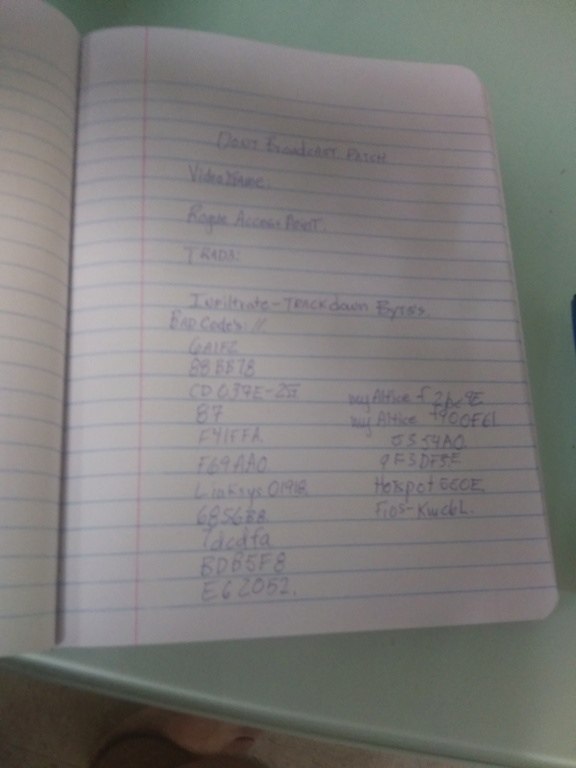 DONT Broadcast PATCH
Video Game.
Rogue Access Point.
TRADS:
Infiltrate - TRACKdown Bytes.
BAD Codes: //
6A1F2
88BB78
CD039E-2
87
F41FFA
F69AA0
Linksys01918
6856BB
7dcdfa
BDB5F8
E62052.
my Altice
my Altice
5359A0
9F3DF5E
Hotspot EE0E
Fios-Kwcbl.